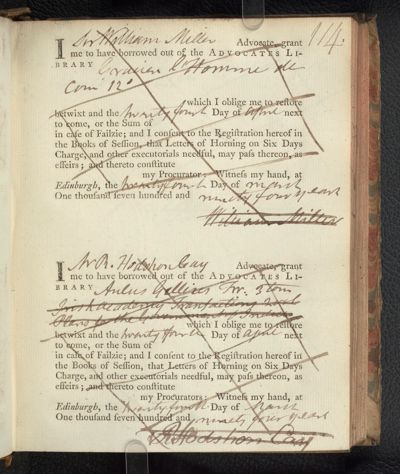 114.
I Sir William Miller Advocate, grant
me to have borrowed out of the ADVOCATES LI-
BRARY Gracien L'Homme de
Cour 12°
which I oblige me to restore
betwixt and the twenty fourth Day of next
to come, or the Sum of
in case of Failzie; and I consent to the Registration hereof in
the Books of Session, that Letters of Horning on Six Days
Charge, and other executorials needful, may pass thereon, as
effeirs; and thereto constitute
my Procurator. Witness my hand, at
Edinburgh, the twenty fourth Day of march
One thousand seven hundred and ninety four years
William Miller
I Mr R. Hodshon Cay Advocate, grant
me to have borrowed out of the ADVOCATES LI-
BRARY Aulus Gellius Fr. 3 tom
Irish Academy Transactions 
Plans for the Government of India
which I oblige me to restore
betwixt and the twenty fourth Day of april next
to come, or the Sum of
in case of Failzie; and I consent to the Registration hereof in
the Books of Session, that Letters of Horning on Six Days
Charge, and other executorials needful, may pass thereon, as
effeirs; and thereto constitute
my Procurator. Witness my hand, at
Edinburgh, the twenty fourth Day of march
One thousand seven hundred and ninety four years
R Hodshon Cay